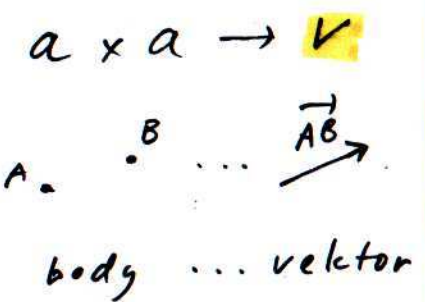 a × a → V
A . . B ... AB→
body ... vektor